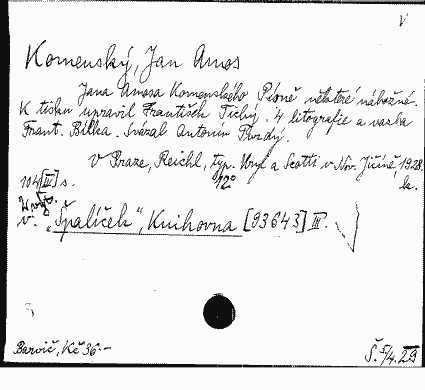 V
Komenský, Jan Amos
Jana Amosa Komenského Písně některé nábožné.
K tisku upravil František Tichý. 4 litografie a vazba
Frant. Bílka. Svázal Antonín Tvrdý.
V Praze, Reichl, typ. Uryč a Scotti v Nov. Jičíně, 1928.
104[III] s. 12°
v. "Špalíček", Knihovna [93643] III.
Barvič, Kč 36.–
Š. 5/4. 29